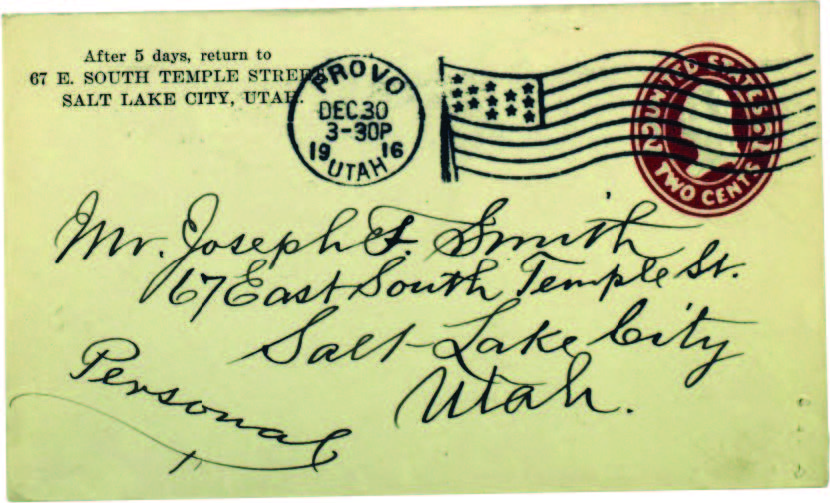 After 5 days, return to
67 E. SOUTH TEMPLE STREET
SALT LAKE CITY, UTAH.
PROVO
DEC 30
3-30P
1916
UTAH
UNITED STATES
TWO CENTS
2 2
Mr. Joseph F. Smith
67 East South Temple St.
Salt Lake City
Utah.
Personal